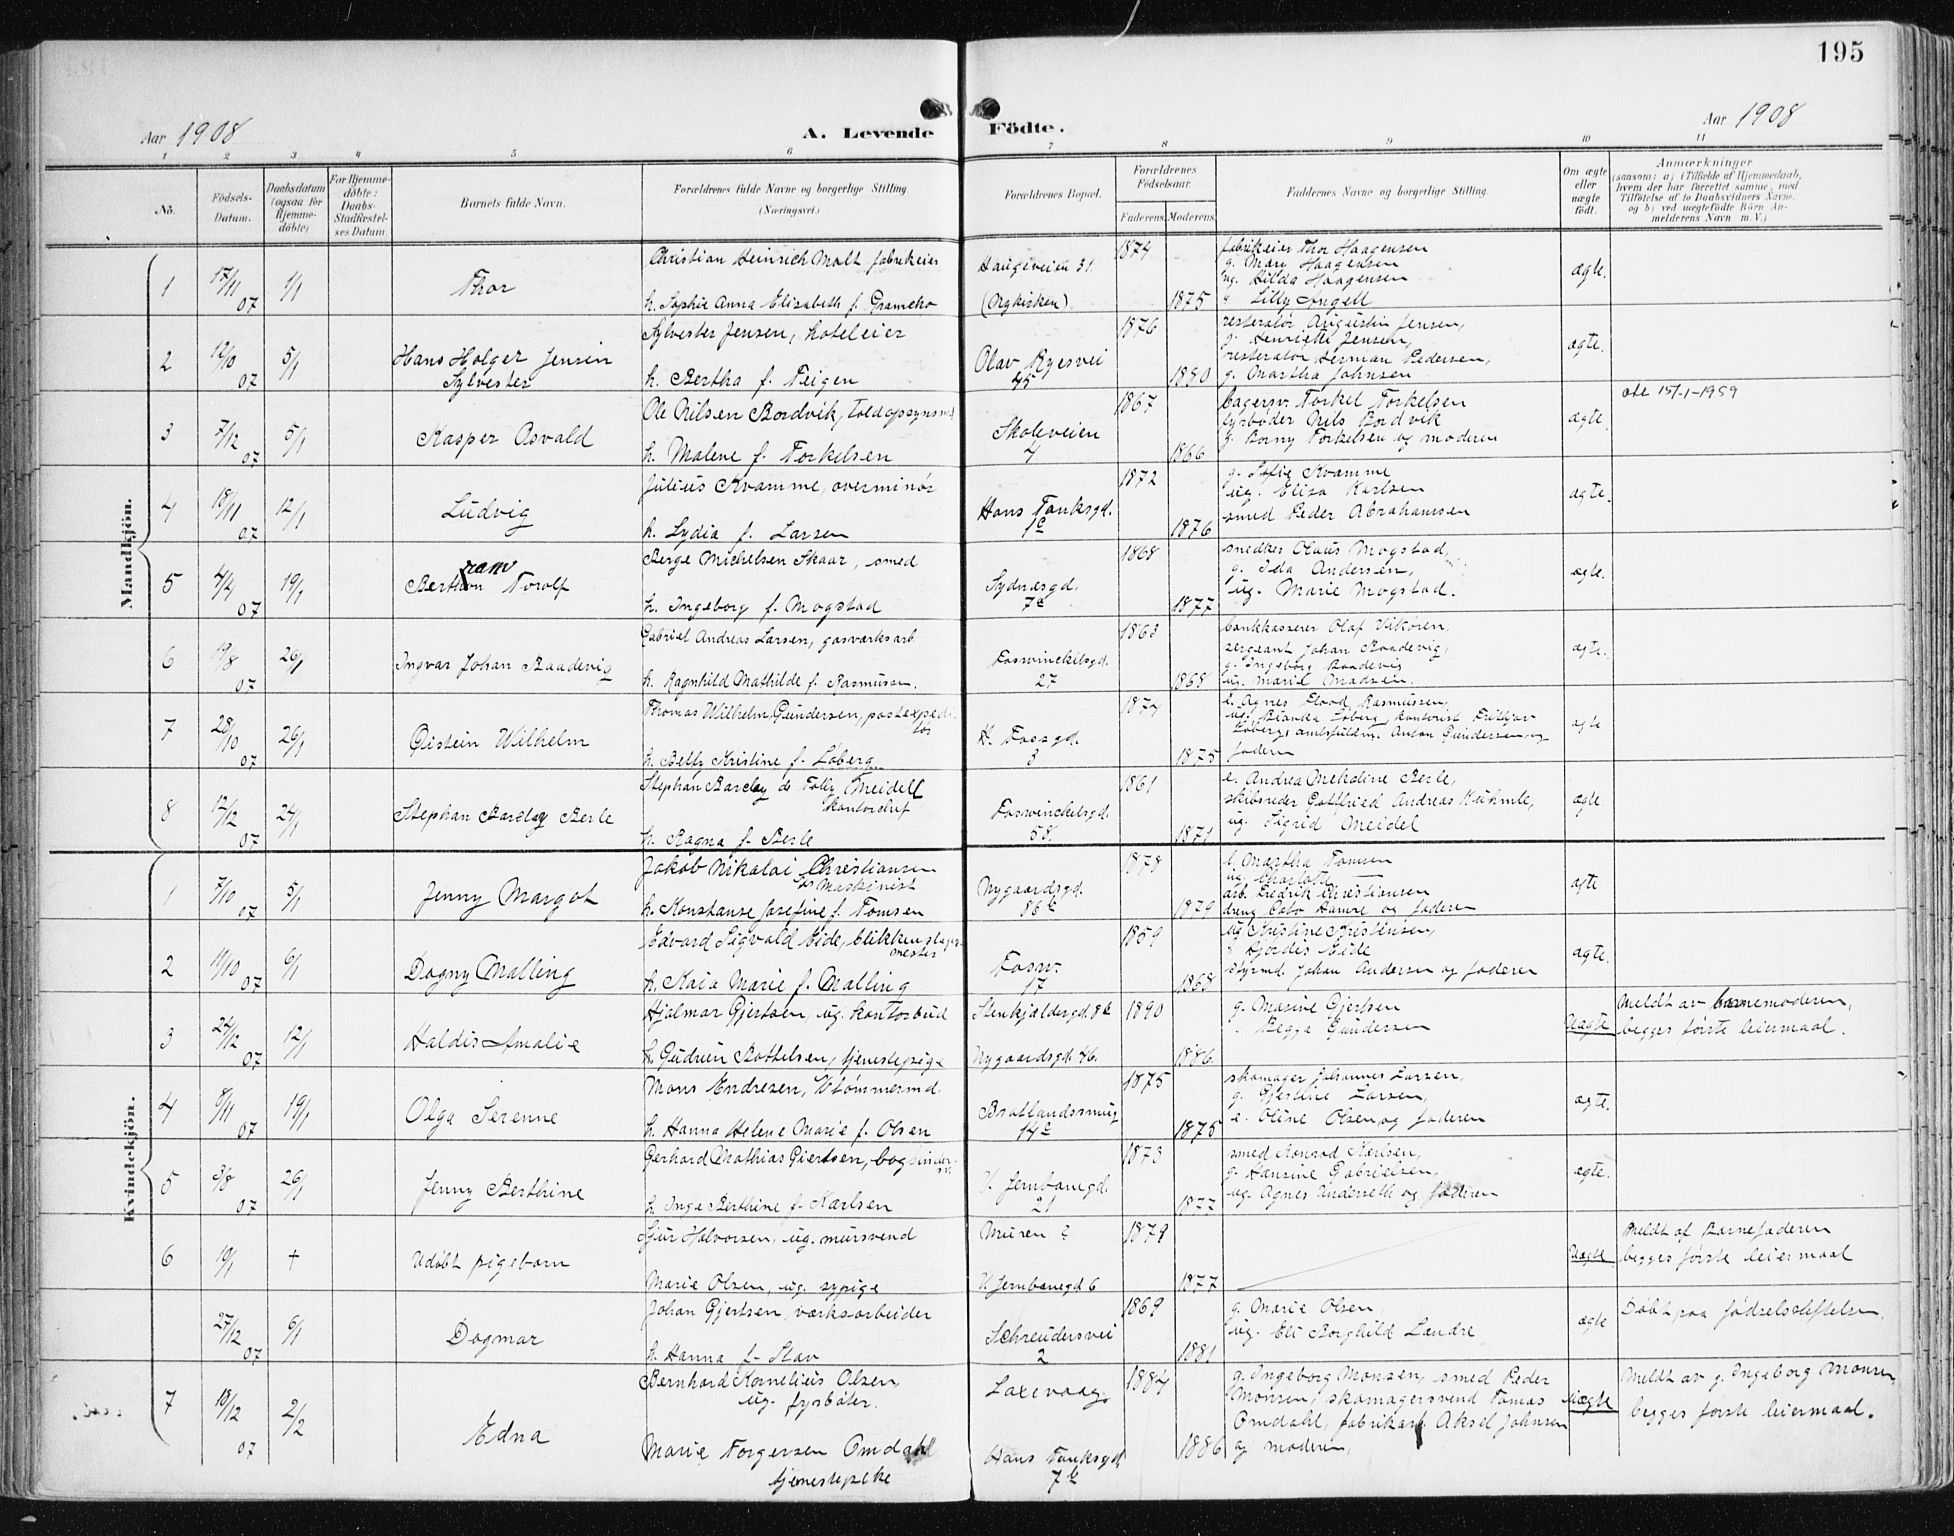 195
Aar 1908
A. Levende Födte.
Aar 1908
1 2 3 4 5 6 7 8 9 10 11
No.
Födsels-Datum.
Daabsdatum (ogsaa for Hjemme-döbte)
For Hjemme-döbte: Daabs-Stadfæstel-ses Datum.
Barnets fulde Navn.
Forældrenes fulde Navne og borgerlige Stilling. (Næringsvei.)
Forældrenes Bopæl.
Forældrenes Födselsaar.
Faderens. Moderens.
Faddernes Navne og borgerlige Stilling.
Om ægte eller uægte født.
Anmærkninger
(saasom: a) i Tilfælde af Hjemmedaab, hvem der har forrettet samme, med Tilføielse af to Daabsvidners Navne, og b) ved uægtefödte Börn An-melderens Navn m. V.)
Mandkjön.
1 17/11 07 1/1 Thor
Christian Heinrich Molt, fabrikeier
h. Sophie Anna Elizabeth f. Grameko
Haugeveien 31. (Nykirken)
1874 1875
fabrikeier Thor Haagensen
g. Mary Haagensen
ug. Hilda Haagensen
" Lilly Angell
ægte.
2 12/10 07 5/1 Hans Holger Jensen Sylvester
Sylvester Jensen, hoteleier
h. Bertha f. Teigen
Olav Ryesvei 45
1876 1880
restoratør Augustin Jensen,
g. Henriette Jensen,
restoratør Herman Pedersen,
g. Martha Johnsen
ægte.
3 7/12 07 5/1 Kasper Osvald
Ole Nilsen Bordvik, toldopsynsm.
h. Malene f. Torkelsen
Skoleveien 4
1867 1866
bagersv. Torkel Torkelsen
fyrbøder Nils Bordvik
g. Borny Torkelsen og moderen
ægte.
15/1-1959
4 18/11 07 12/1 Ludvig
Julius Kvamme, overminør
h. Lydia f. Larsen
Hans Tanksgd. 1c
1872 1876
g. Sofie Kvamme
ug. Elisa Karlsen
smed Peder Abrahamsen
ægte.
5 4/4 07 19/1 Berthon ram Torolf
Berge Michelsen Skaar, smed
h. Ingeborg f. Mogstad
Sydnæsgd. 7c
1868 1877
snedker Olaus Mogstad,
g. Ida Andersen,
ug. Marie Mogstad.
ægte.
6 19/8 07 26/1 Ingvar Johan Baadevig
Gabriel Andreas Larsen, gasværksarb
h. Ragnhild Mathilde f. Rasmussen.
Fosswinckelsgd. 27
1863 1868
bankkasserer Olaf Vikören,
sergeant Johan Baadevig,
g. Ingeborg Baadevig
ug. Marie Madsen.
ægte.
7 28/10 07 26/1 Øistein Wilhelm
Thomas Wilhelm Gundersen, postexpeditør
h. Betty Kristine f. Løberg
H. Fossgd. 3
1874 1875
e. Agnes Flood Rasmussen,
ug. Bianka Løberg, kontorist Fritjov
Løberg, amtsfuldm. Anton Gundersen og
faderen
ægte
8 12/12 07 24/1 Stephan Barclay Berle
Stephan Barclay de Tolly Meidell
kontorchef
h. Ragna f. Berle
Foswinckelsgd. 58.
1861 1871
e. Andrea Methdine Berle,
skibsreder Gottfried Andreas Kuhnle,
ug. Sigrid Meidel
ægte.
Kvindekjön.
1 7/10 07 5/1 Jenny Margot
Jakob Nikolai Christiansen
Maskinist
h. Konstanse Josefine f. Tomsen
Nygaardsgd. 86b
1878 1879
e. Martha Tomsen
ug. Charlotte
arb. Fredrik Kristiansen
dreng Cato Hamre og faderen
ægte
2 11/10 07 6/1 Dagny Malling
Edvard Sigvald Eide, blikkenslagermester
h. Kaia Marie f. Malling
Fosw. 17
1859 1868
ug Kristine Kristensen,
" Hjørdis Eide
styrmd. Johan Andersen og faderen
ægte.
3 24/12 07 12/1 Haldis Amalie
Hjalmar Gjertsen, ug. kontorbud
h. Gudrun Bottelsen, tjenestepige
Stenkjeldergd. 8b
Nygaardsgd. 46.
1890 1886.
g. Marine Gjertsen
" Begga Gundersen
Uægte
Meldt av barnemoderen,
begges første leiermaal.
4 8/11 07 19/1 Olga Serenne
Mons Endresen, tømmermd.
h. Hanna Helene Marie f. Olsen
Bratlandssmug 14c
1875 1875
skomager Johannes Larsen,
g. Gjestine Larsen,
e. Oline Olsen og faderen
ægte.
5 3/8 07 26/1 Jenny Berthine
Gerhard Mathias Giertsen, bogbindersv
h. Inga Berthine f. Karlsen
V. Jernbanegd. 21
1873 1877
smed Konrad Karlsen,
g. Hansine Gabrielsen,
ug. Agnes Underseth og faderen
ægte.
6 19/1 + Udøbt pigebarn
Sjur Halvorsen, ug. mursvend
Marie Olsen, ug. sypige
Muren ?
V. Jernbanegd 6
1879 1877
Uægte.
Meldt af Barnefaderen
begges første leiermaal
7/12 07 6/1 Dagmar
Johan Gjertsen, værksarbeider
h. Hanna f. Stav
Schreudersvei 2
1869 1881
g. Marie Olsen,
ug. Eli Borghild Landre
ægte
Døbt paa fødselsstiftelsen.
7 18/12 07 2/2 Edna
Bernhard Kornelius Olsen,
ug. fyrbøter.
Marie Torgersen Omdahl
tjenestepike
Laxevaag.
Hans Tanksgd 7b
1884 1886
g. Ingeborg Monsen, smed Peder
Monsen, skomagersvend Tomas
Omdahl, fabrikarb. Aksel Johnsen
og moderen.
Uægte
Meldt av g. Ingeborg Monsen,
begges første leiermaal.